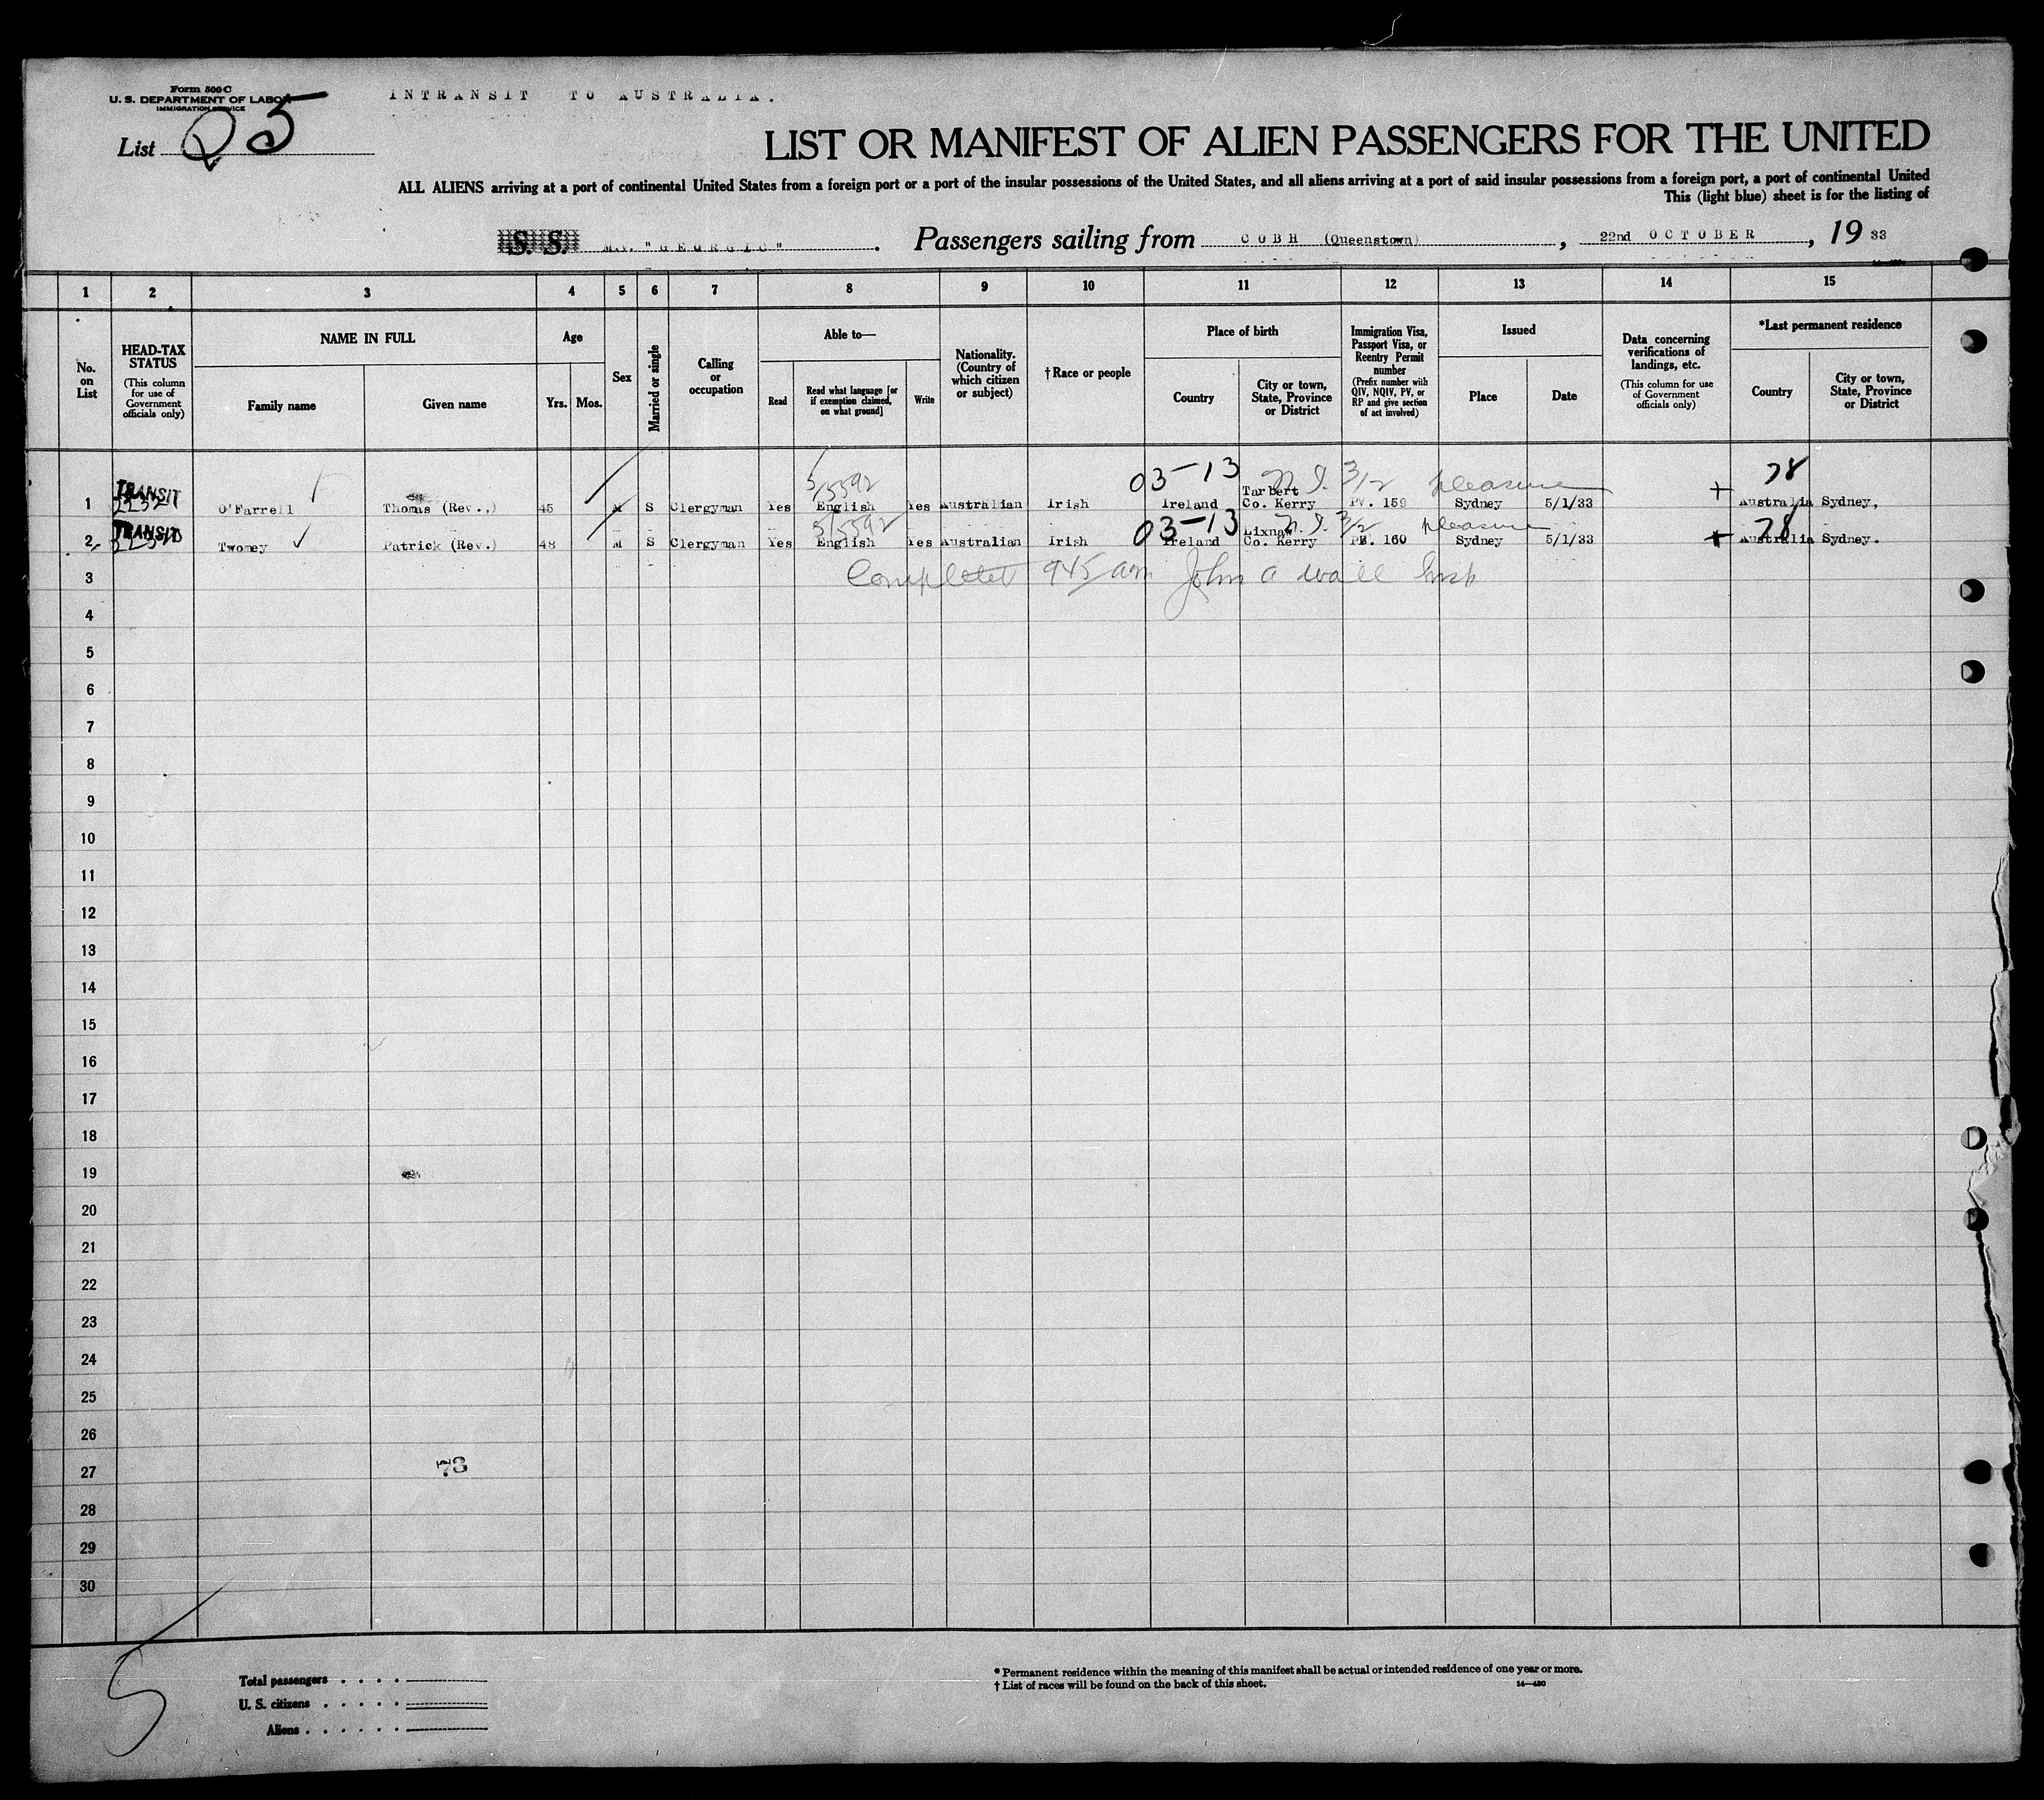 Form 500 C
U. S. DEPARTMENT OF LABOR
IMMIGRATION SERVICE
INTRANSIT TO AUSTRALIA.
List 5
LIST OR MANIFEST OF ALIEN PASSENGERS FOR THE UNITED
ALL ALIENS arriving at a port of continental United States from a foreign port or a port of the insular possessions of the United States, and all aliens arriving at a port of said insular possessions from a foreign port, a port of continental United
This (light blue) sheet is for the listing of
S. S. M.V. "GEORGIC". Passengers sailing from COBH (Queenstown), 22nd OCTOBER, 19 33
1 2 3 4 5 6 7 8 9 10 11 12 13 14 15
No. on List
HEAD-TAX STATUS (This column for use of Government officials only)
NAME IN FULL
Family name
Given name
Age
Yrs. Mos.
Sex
Married or single
Calling or occupation
Able to—
Read
Read what language [or if exemption claimed, on what ground]
Write
Nationality. (Country of which citizen or subject)
† Race or people
Place of birth
Country
City or town, State, Province or District
Immigration Visa, Passport Visa, or Reentry Permit number (Prefix number with QIV, NQIV, PV, or RP and give section of act involved)
Issued
Place
Date
Data concerning verifications of landings, etc. (This column for use of Government officials only)
*Last permanent residence
Country
City or town, State, Province or District
03-13 N.I. 3/2 pleasure 78
5/5592
1 TRANSIT O'Farrell Thomas (Rev.,) 45 M S Clergyman Yes English Yes Australian Irish Ireland Tarbert Co. Kerry PV. 159 Sydney 5/1/33 + Australia Sydney,
5/5592 03-13 N.I. 3/2 pleasure 78
2 TRANSIT Twomey Patrick (Rev.) 48 M S Clergyman Yes English Yes Australian Irish Ireland Lixnaw Co. Kerry PV. 160 Sydney 5/1/33 + Australia Sydney.
Completed 945 am John A Wall Insp
3
4
5
6
7
8
9
10
11
12
13
14
15
16
17
18
19
20
21
22
23
24
25
26
27
73
28
29
30
5
Total passengers
U. S. citizens
Aliens
* Permanent residence within the meaning of this manifest shall be actual or intended residence of one year or more.
† List of races will be found on the back of this sheet.
14—430